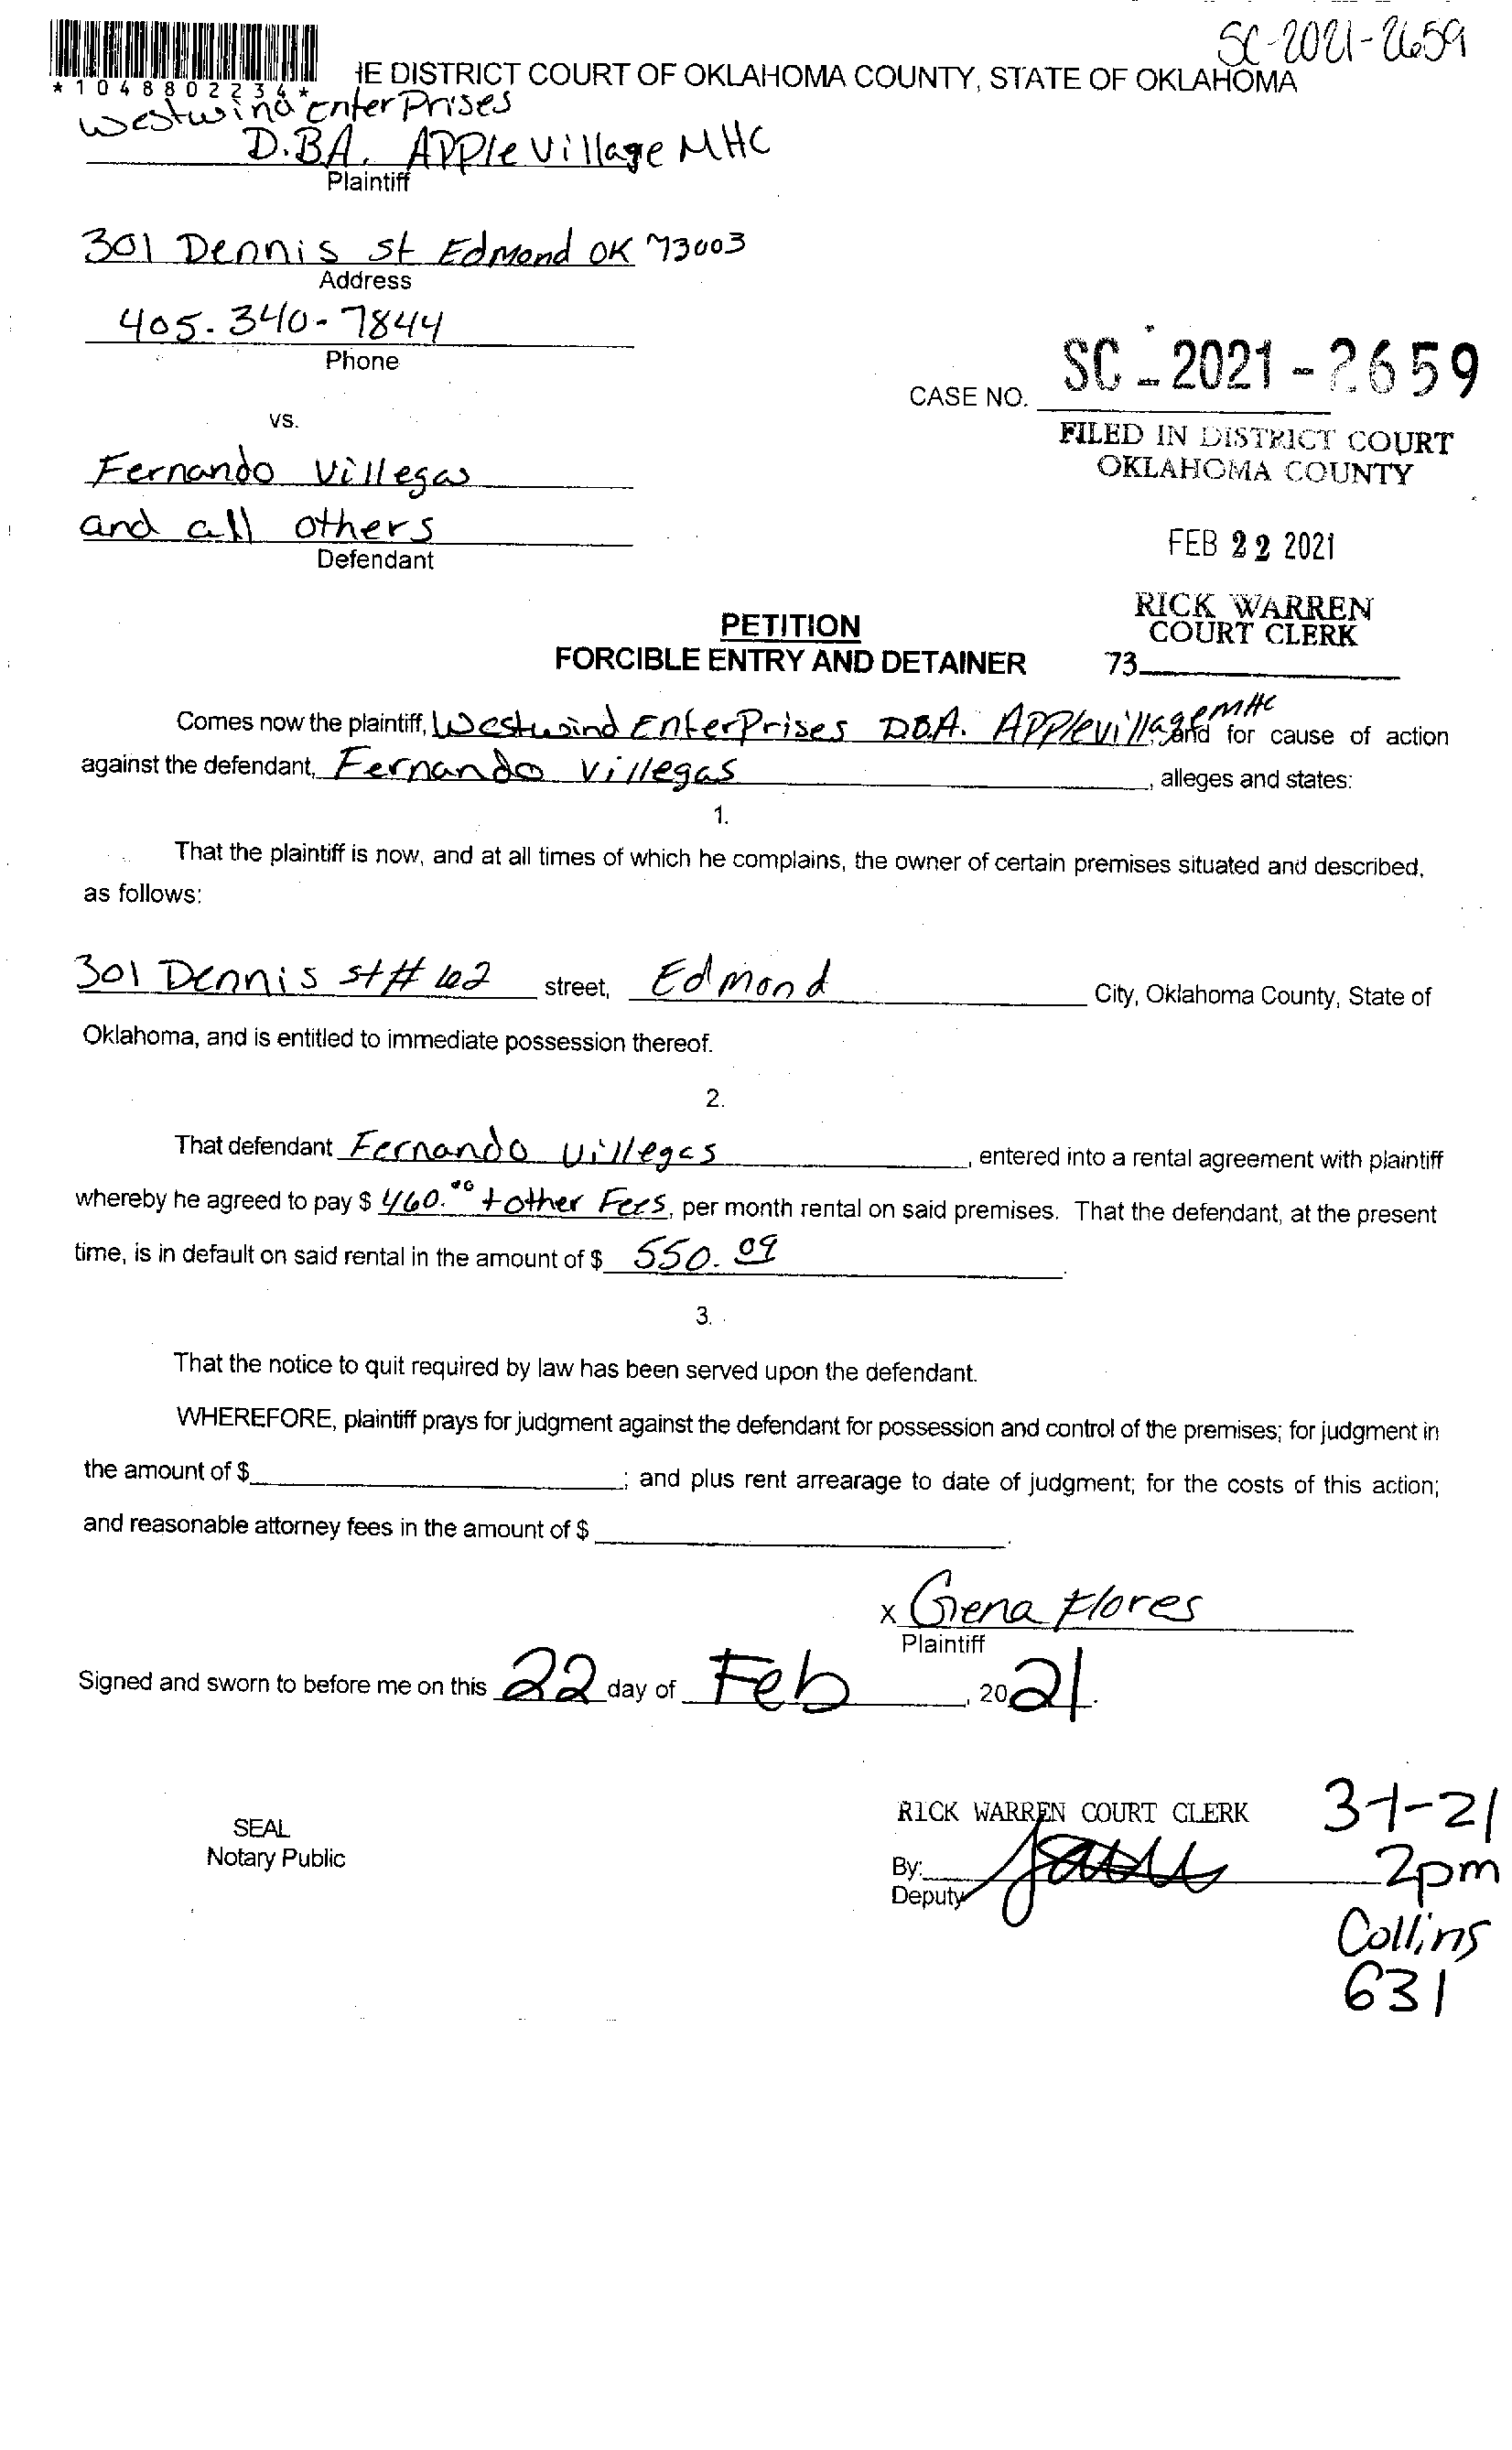 SC-2021-2659
*1048802234*
IE DISTRICT COURT OF OKLAHOMA COUNTY, STATE OF OKLAHOMA
Westwind EnterPrises
D.BA. APPle Village MHC
Plaintiff
301 Dennis St Edmond OK 73003
Address
405-340-7844
Phone
CASE NO. SC-2021-2659
vs.
FILED IN DISTRICT COURT
OKLAHOMA COUNTY
Fernando Villegas
and all others
Defendant
FEB 22 2021
RICK WARREN
COURT CLERK
73
PETITION
FORCIBLE ENTRY AND DETAINER
Comes now the plaintiff, Westwind EnterPrises DBA. APPlevillage MHC and for cause of action
against the defendant, Fernando Villegas, alleges and states:
1.
That the plaintiff is now, and at all times of which he complains, the owner of certain premises situated and described,
as follows:
301 Dennis St # 62 street, Edmond City, Oklahoma County, State of
Oklahoma, and is entitled to immediate possession thereof.
2.
That defendant Fernando Villegas, entered into a rental agreement with plaintiff
whereby he agreed to pay $ 460.00 + other Fees, per month rental on said premises. That the defendant, at the present
time, is in default on said rental in the amount of $ 550.09.
3.
That the notice to quit required by law has been served upon the defendant.
WHEREFORE, plaintiff prays for judgment against the defendant for possession and control of the premises; for judgment in
the amount of $ ; and plus rent arrearage to date of judgment; for the costs of this action;
and reasonable attorney fees in the amount of $ .
x Gena Flores
Plaintiff
Signed and sworn to before me on this 22 day of Feb, 2021.
SEAL
Notary Public
RICK WARREN COURT CLERK
By:
Deputy
3-1-21
2pm
Collins
631